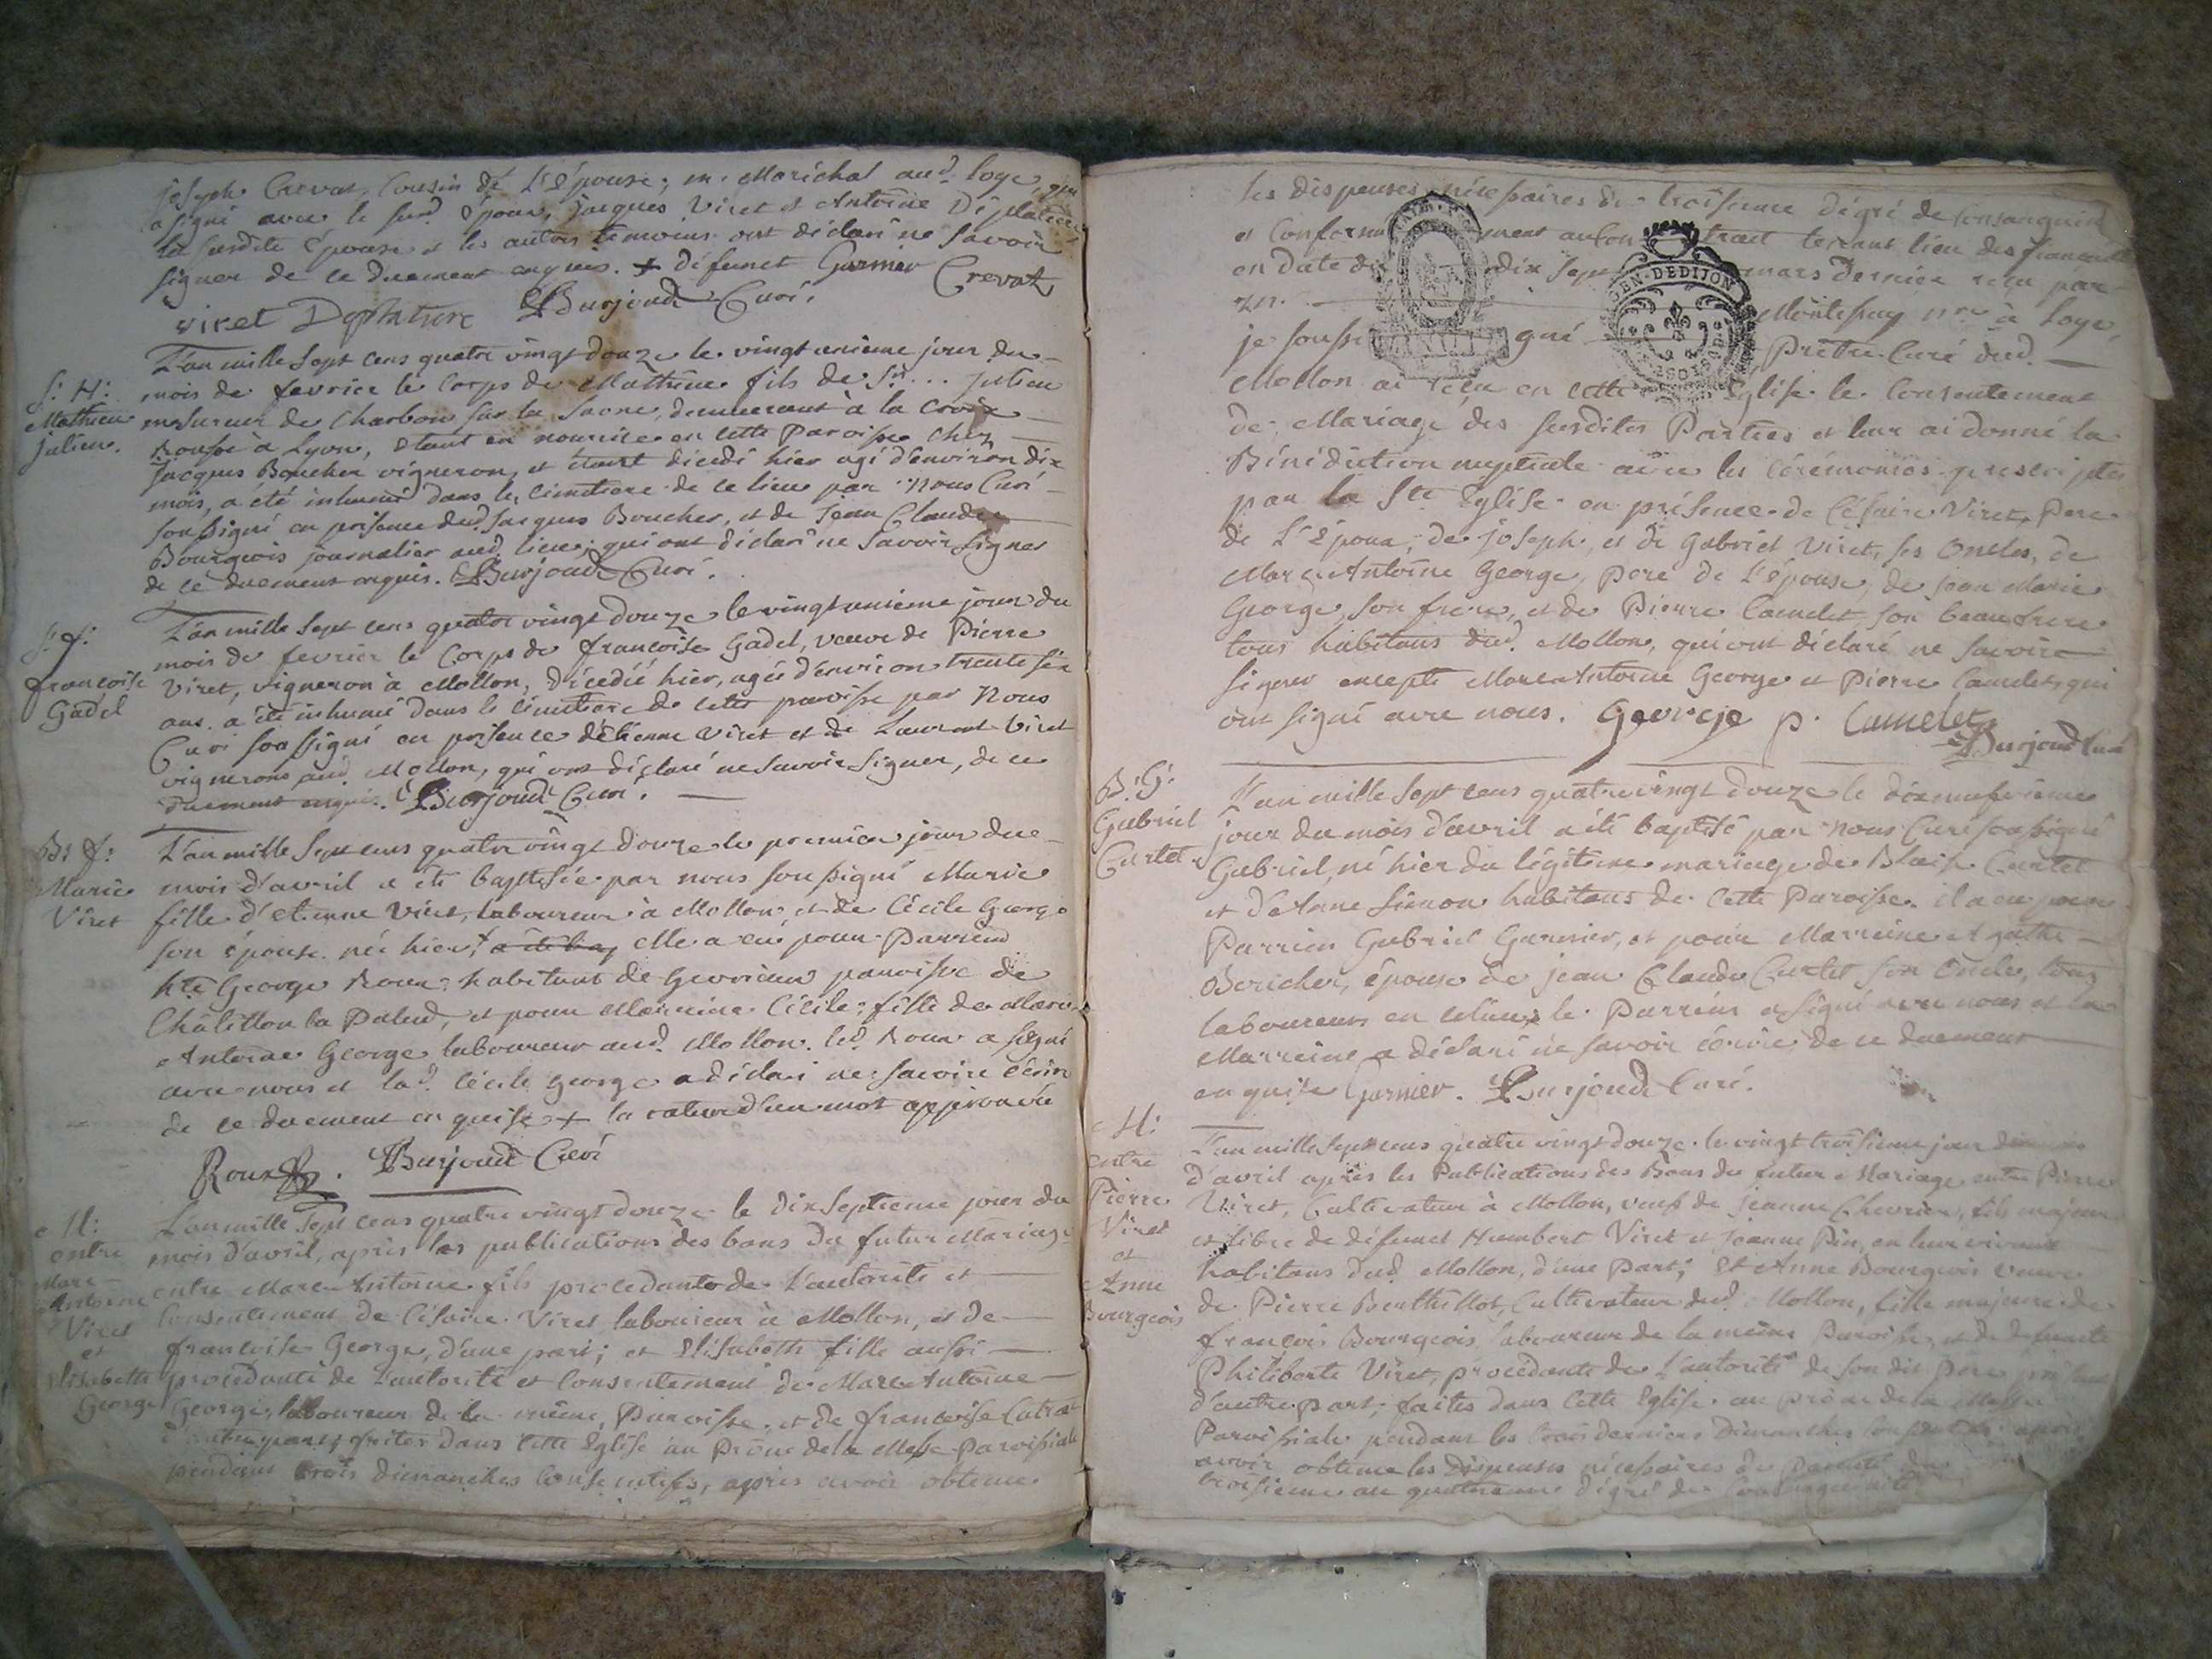 joseph Crevat, Cousin de L'épouse; m. Maréchal aud. loye, qui
a signé avec le susd. époux, jacques Viret et Antoine Déplature
la susdite épouse et les autres témoins ont déclaré ne savoir
signer de ce duement enquis. + défunct Garnier Crevat
viret Deplature Burjoud Curé.
L'an mille sept cens quatre vingt douze le vingt unieme jour du
S: H:
Mathieu
julien.
mois de fevrier le Corps de Mathieu fils de Sr... julien
mesureur de Charbon sur la Saone, demeurant à la Croix
Rousse à Lyon, etant en nourrice en cette Paroisse chez
Jacques Boucher vigneron, et étant décédé hier agé d'environ dix
mois, a été inhumé dans le cimetiere de ce lieu par Nous Curé
soussigné en présence dud. Jacques Boucher, et de Jean Claude
Bourgeois journalier aud. lieu; qui ont déclaré ne savoir signer
de ce duement enquis. Burjoud Curé.
S: f:
françoise
Gadel
L'an mille sept cens quatre vingt douze le vingt unieme jour du
mois de fevrier le Corps de françoise Gadel, veuve de Pierre
Viret, vigneron à Mollon, décédée hier, agée d'environ trente six
ans a été inhumée dans le cimetiere de cette paroisse par Nous
Curé soussigné en présence d'Etienne Viret et de Laurent Viret
vignerons aud. Mollon, qui ont déclaré ne savoir signer, de ce
duement enquis. Burjoud Curé.
B: f:
Marie
Viret
L'an mille sept cens quatre vingt douze le premier jour du
mois d'avril a été baptisée par nous soussigné Marie
fille d'Etienne Viret, laboureur à Mollon et de Cécile George
son épouse née hier, + elle a eu pour Parrein
hte George Roux habitant de Gevrieux paroisse de
Châtillon la Palud, et pour Marreine Cécile fille de Marc
Antoine George laboureur aud. Mollon. led. Roux a signé
avec nous et lad. Cécile George a déclaré ne savoir écrire
de ce duement enquise + la rature d'un mot approuvée
Roux. Burjoud Curé
M:
entre
Marc
Antoine
Viret
et
Elisabeth
George
L'an mille sept cens quatre vingt douze le dix septieme jour du
mois d'avril, après les publications des bans du futur Mariage
entre Marc Antoine fils procedant de l'autorité et
Consentement de Césaire Viret laboureur à Mollon, et de
françoise George, d'une part; et Elisabeth fille aussi
procédante de l'autorité et Consentement de Marc Antoine
George laboureur de la même Paroisse, et de françoise
d'autre part, faites dans cette Eglise au Prône de la Messe Paroissiale
pendant trois dimanches consecutifs, après avoir obtenu
les dispenses nécessaires du troisieme dégré de consanguinité
et Conformément au Contrat tenant lieu des fiançailles
en date du dix sept mars dernier reçu par
Me. Montessuy nre à Loye,
je soussigné Prêtre Curé dud.
Mollon ai reçu en cette Eglise le Consentement
de Mariage des susdites Parties et leur ai donné la
Bénédiction nuptiale avec les cérémonies prescrites
par la Ste Eglise en présence de Césaire Viret, Pere
de L'Epoux, de joseph, et de Gabriel Viret, ses Oncles, de
Marc Antoine George, pere de L'épouse, de jean Marie
George, son frere, et de Pierre Camelet son beaufrere
tous habitans dud. Mollon, qui ont déclaré ne savoir
signer excepté Marc Antoine George et Pierre Camelet, qui
ont signé avec nous. George p. Camelet
Burjoud Curé
B: G:
Gabriel
Curtet
L'an mille sept cens quatre vingt douze le dixneuvieme
jour du mois d'avril a été baptisé par nous Curé soussigné
Gabriel, né hier du légitime mariage de Blaise Curtet
et d'Anne Simon habitans de cette Paroisse. il a eu pour
Parrein Gabriel Garnier, et pour Marreine Agathe
Bericher, épouse de jean Claude Curtet son Oncle, tous
laboureurs en ce lieu, le Parrein a signé avec nous et la
Marreine a déclaré ne savoir écrire de ce duement
enquise Garnier. Burjoud Curé.
M:
entre
Pierre
Viret
et
Anne
Bourgeois
L'an mille sept cens quatre vingt douze le vingt troisieme jour du mois
d'avril après les Publications des Bans du futur Mariage entre Pierre
Viret, Cultivateur à Mollon, veuf de jeanne Chevrier, fils majeur
et libre de défunct Humbert Viret et jeanne Pin, en leur vivant
habitans dud. Mollon, d'une Part; Et Anne Bourgeois veuve
de Pierre Berthillot, Cultivateur dud. Mollon, fille majeure de
françois Bourgeois laboureur de la même Paroisse, et de defuncte
Philiberte Viret, procédante de l'autorité de son dit Pere présent
d'autre part; faites dans cette Eglise au prône de la Messe
Paroissiale pendant les trois derniers Dimanches consécutifs après
avoir obtenu les Dispenses nécessaires de parenté du
troisieme au quatrieme dégré de Consanguinité
GEN. DE DIJON